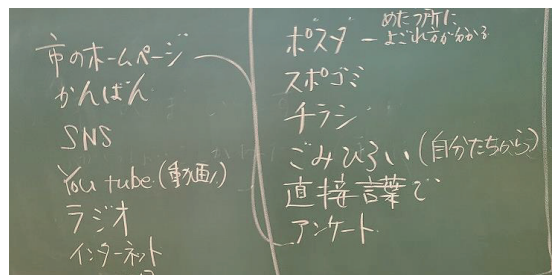 市のホームページ
かんばん
SNS
You tube (動画)
ラジオ
インターネット
ポスター
めだつ所に
よごれ方が分かる
スポゴミ
チラシ
ごみひろい (自分たちから)
直接言葉で
アンケート